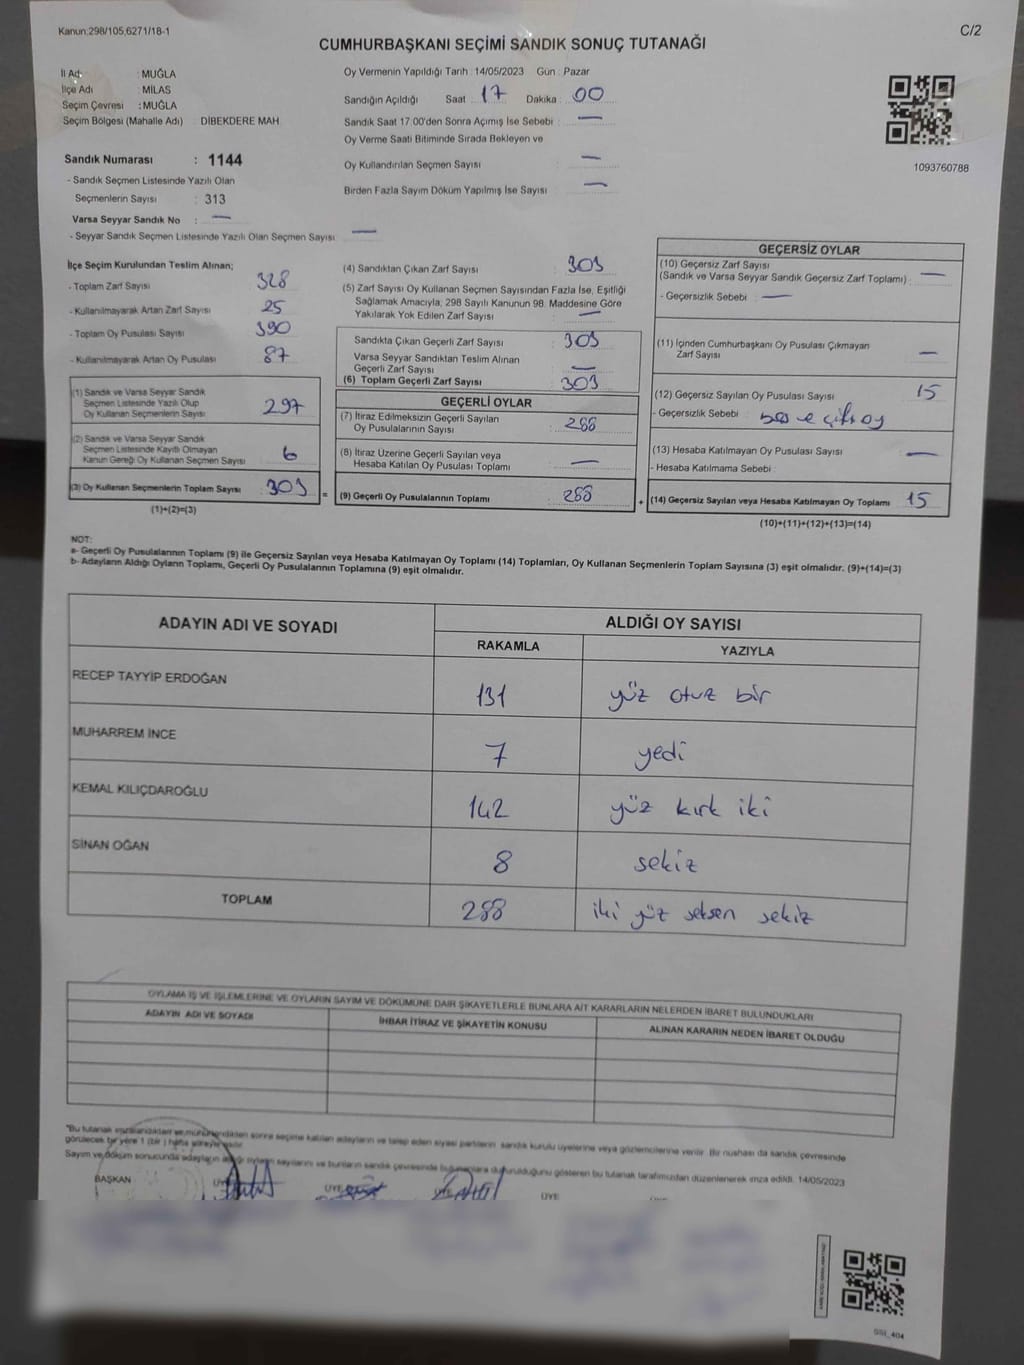 Kanun:298/105,6271/18-1
C/2
CUMHURBAŞKANI SEÇİMİ SANDIK SONUÇ TUTANAĞI
İl Adı : MUĞLA
İlçe Adı : MİLAS
Seçim Çevresi : MUĞLA
Seçim Bölgesi (Mahalle Adı) DİBEKDERE MAH.
Sandık Numarası : 1144
- Sandık Seçmen Listesinde Yazılı Olan
Seçmenlerin Sayısı : 313
Varsa Seyyar Sandık No : —
- Seyyar Sandık Seçmen Listesinde Yazılı Olan Seçmen Sayısı —
Oy Vermenin Yapıldığı Tarih : 14/05/2023 Gün : Pazar
Sandığın Açıldığı Saat 17 Dakika : 00
Sandık Saat 17.00'den Sonra Açımış İse Sebebi : —
Oy Verme Saati Bitiminde Sırada Bekleyen ve
Oy Kullandırılan Seçmen Sayısı —
Birden Fazla Sayım Döküm Yapılmış İse Sayısı —
1093760788
İlçe Seçim Kurulundan Teslim Alınan;
- Toplam Zarf Sayısı 328
- Kullanılmayarak Artan Zarf Sayısı 25
- Toplam Oy Pusulası Sayısı 390
- Kullanılmayarak Artan Oy Pusulası 87
(1) Sandık ve Varsa Seyyar Sandık
Seçmen Listesinde Yazılı Olup
Oy Kullanan Seçmenlerin Sayısı 297
(2) Sandık ve Varsa Seyyar Sandık
Seçmen Listesinde Kayıtlı Olmayan
Kanun Gereği Oy Kullanan Seçmen Sayısı 6
(3) Oy Kullanan Seçmenlerin Toplam Sayısı 303
(1)+(2)=(3)
(4) Sandıktan Çıkan Zarf Sayısı : 303
(5) Zarf Sayısı Oy Kullanan Seçmen Sayısından Fazla İse, Eşitliği
Sağlamak Amacıyla, 298 Sayılı Kanunun 98. Maddesine Göre
Yakılarak Yok Edilen Zarf Sayısı : —
Sandıkta Çıkan Geçerli Zarf Sayısı : 303
Varsa Seyyar Sandıktan Teslim Alınan
Geçerli Zarf Sayısı : —
(6) Toplam Geçerli Zarf Sayısı 303
GEÇERLİ OYLAR
(7) İtiraz Edilmeksizin Geçerli Sayılan
Oy Pusulalarının Sayısı : 288
(8) İtiraz Üzerine Geçerli Sayılan veya
Hesaba Katılan Oy Pusulası Toplamı —
= (9) Geçerli Oy Pusulalarının Toplamı 288
GEÇERSİZ OYLAR
(10) Geçersiz Zarf Sayısı
(Sandık ve Varsa Seyyar Sandık Geçersiz Zarf Toplamı) : —
- Geçersizlik Sebebi : —
(11) İçinden Cumhurbaşkanı Oy Pusulası Çıkmayan
Zarf Sayısı —
(12) Geçersiz Sayılan Oy Pusulası Sayısı 15
- Geçersizlik Sebebi : boş ve çift oy
(13) Hesaba Katılmayan Oy Pusulası Sayısı —
- Hesaba Katılmama Sebebi :
+ (14) Geçersiz Sayılan veya Hesaba Katılmayan Oy Toplamı 15
(10)+(11)+(12)+(13)=(14)
NOT:
a- Geçerli Oy Pusulalarının Toplamı (9) ile Geçersiz Sayılan veya Hesaba Katılmayan Oy Toplamı (14) Toplamları, Oy Kullanan Seçmenlerin Toplam Sayısına (3) eşit olmalıdır. (9)+(14)=(3)
b- Adayların Aldığı Oyların Toplamı, Geçerli Oy Pusulalarının Toplamına (9) eşit olmalıdır.
ADAYIN ADI VE SOYADI
ALDIĞI OY SAYISI
RAKAMLA YAZIYLA
RECEP TAYYİP ERDOĞAN 131 yüz otuz bir
MUHARREM İNCE 7 yedi
KEMAL KILIÇDAROĞLU 142 yüz kırk iki
SİNAN OĞAN 8 sekiz
TOPLAM 288 iki yüz seksen sekiz
OYLAMA İŞ VE İŞLEMLERİNE VE OYLARIN SAYIM VE DÖKÜMÜNE DAİR ŞİKAYETLERLE BUNLARA AİT KARARLARIN NELERDEN İBARET BULUNDUKLARI
ADAYIN ADI VE SOYADI İHBAR İTİRAZ VE ŞİKAYETİN KONUSU ALINAN KARARIN NEDEN İBARET OLDUĞU
*Bu tutanak imzalandıktan ve mühürlendikten sonra seçime katılan adayların ve talep eden siyasi partilerin sandık kurulu üyelerine veya gözlemcilerine verilir. Bir nüshası da sandık çevresinde
görülecek bir yere 1 (bir) hafta süreyle asılır.
Sayım ve döküm sonucunda adayların aldığı oyların sayılarını ve bunların sandık çevresinde bulunanlara duyurulduğunu gösteren bu tutanak tarafımızdan düzenlenerek imza edildi. 14/05/2023
BAŞKAN ÜYE ÜYE ÜYE ÜYE